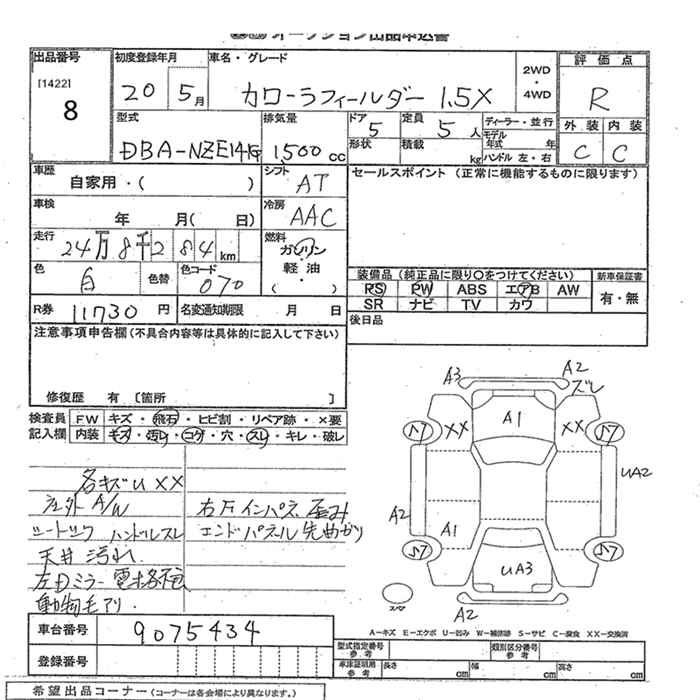 オークション出品申込書
出品番号 初度登録年月 車名・グレード 2WD・4WD 評価点
[1422] 8 20 5月 カローラフィールダー 1.5X R
型式 排気量 ドア 定員 ディーラー・並行 外装 内装
DBA-NZE141G 1,500cc 5 5人 モデル年式 年 C C
形状 積載 kg ハンドル 左・右
車歴 自家用・( ) シフト AT セールスポイント (正常に機能するものに限ります)
車検 年 月( 日) 冷房 AAC
走行 24万8千284km 燃料 ガソリン・軽油 ( ・ )
色 白 色替 色コード 070 装備品 (純正品に限り○をつけてください) 新車保証書
PS PW ABS エアB AW 有・無
SR ナビ TV カワ
R券 11730円 名変通知期限 月 日 後日品
注意事項申告欄(不具合内容等は具体的に記入して下さい)
修復歴 有 [箇所 ]
検査員記入欄 FW キズ・飛石・ヒビ割・リペア跡・×要
内装 キズ・汚レ・コゲ・穴・スレ・キレ・破レ
各キズU XX
社外A/W
シートコゲ ハンドルスレ
天井汚れ
左Dミラー電格
動物毛アリ
右Fインパネ歪み
エンドパネル先曲がり
A3 A2 ズレ
A1
XX XX
UA2
A2
A1
UA3
A2
スペア
A－キズ E－エクボ U－凹み W－補修跡 S－サビ C－腐食 XX－交換済
車台番号 9075434
登録番号
型式指定番号参考 類別区分番号参考
車庫証明用参考 長さ cm 幅 cm 高さ cm
希望出品コーナー(コーナーは各会場により異なります。)